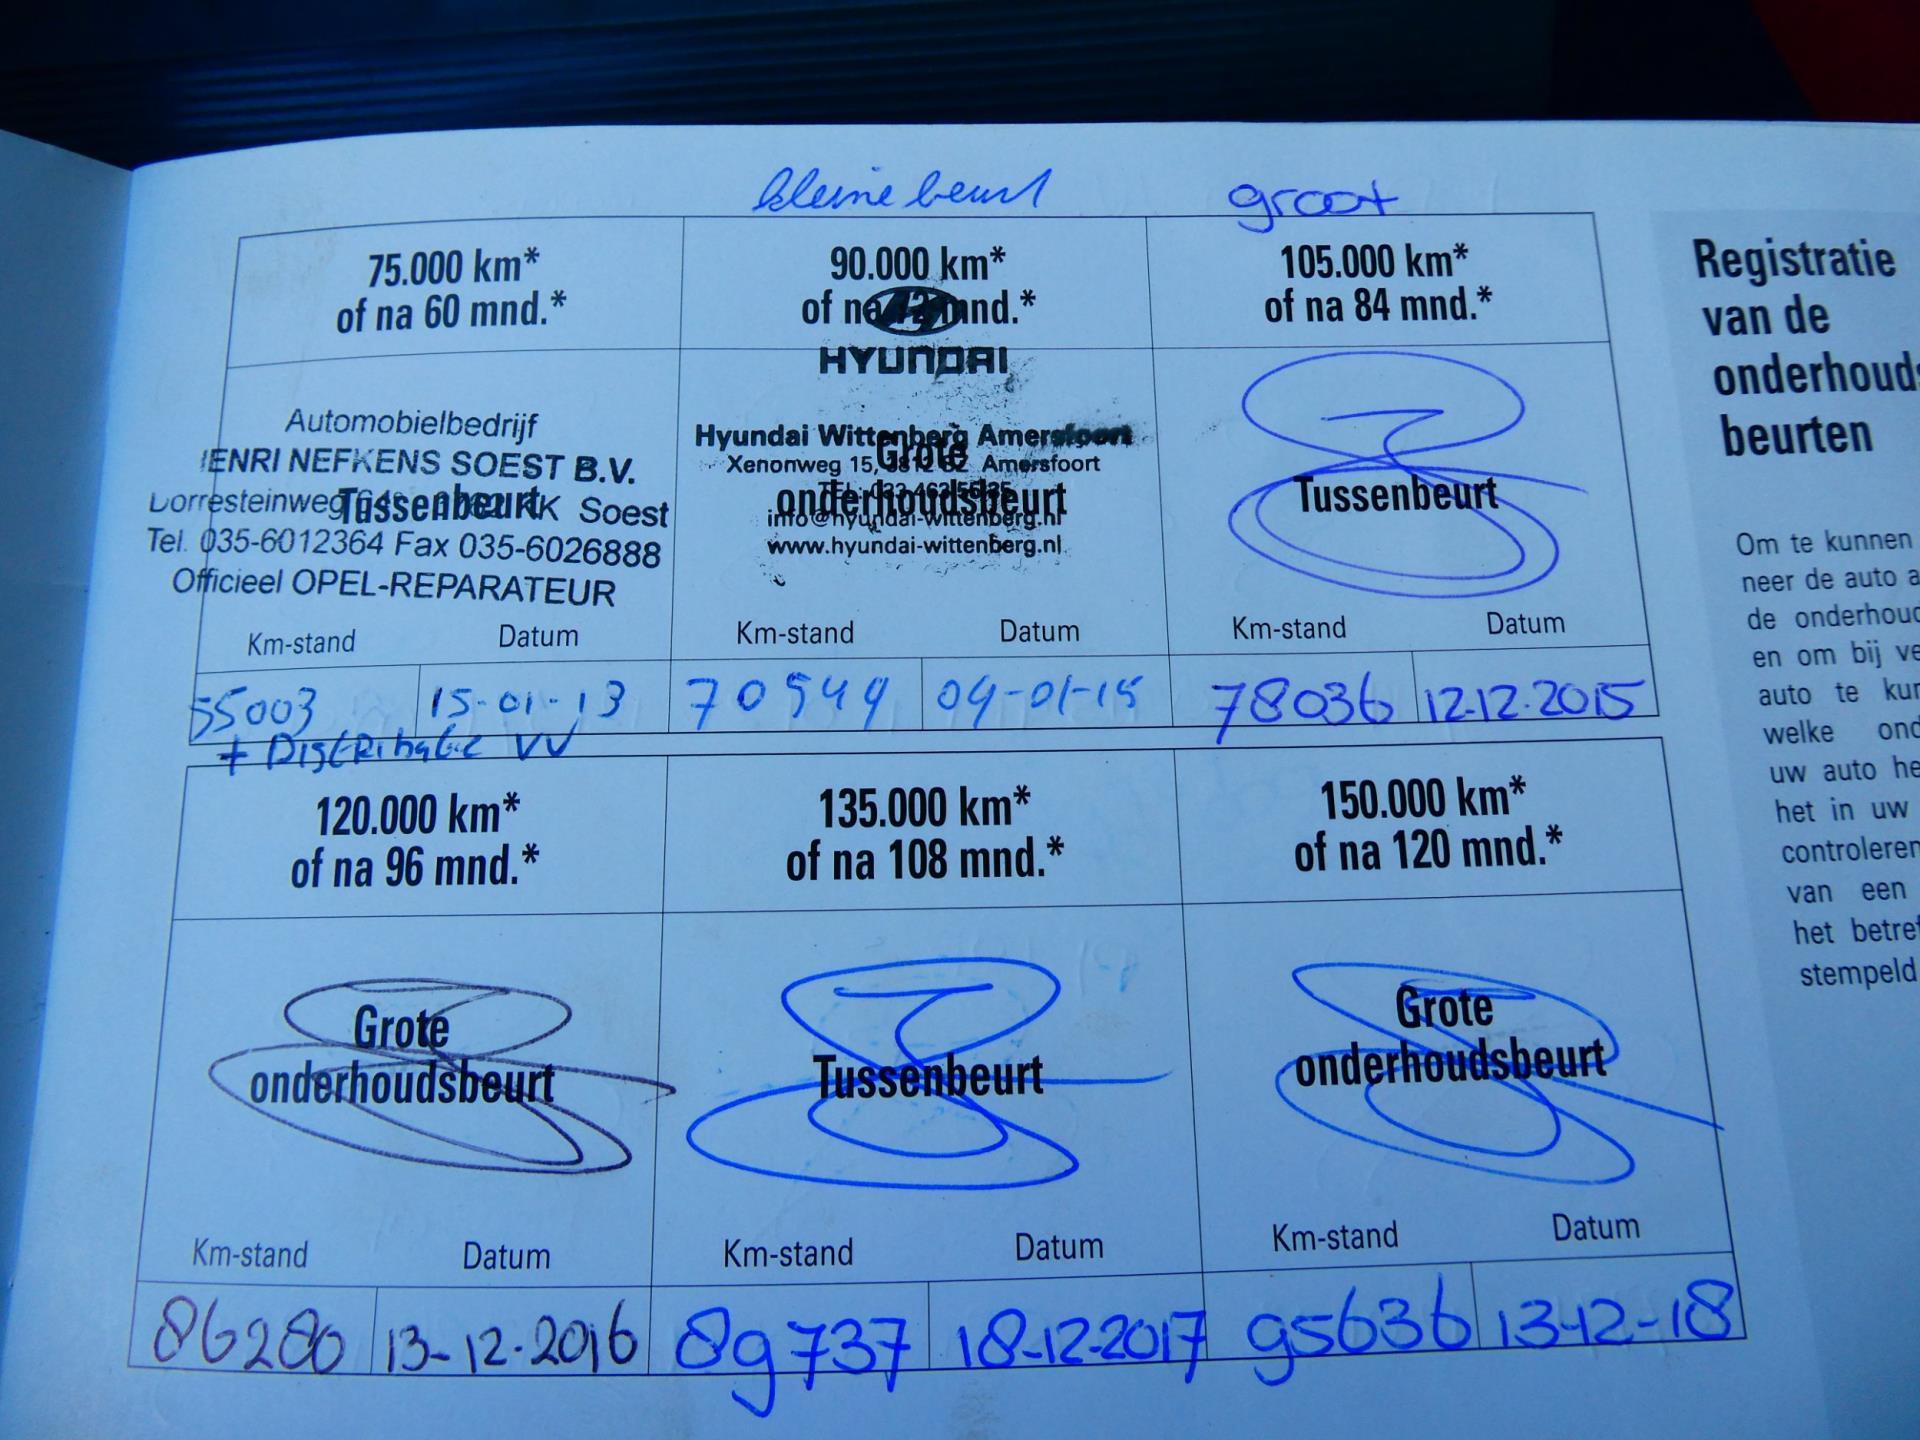 kleine beurt
groot
75.000 km*
of na 60 mnd.*
90.000 km*
of na 72 mnd.*
105.000 km*
of na 84 mnd.*
HYUNDAI
Automobielbedrijf
HENRI NEFKENS SOEST B.V.
Dorresteinweg Soest
Tel. 035-6012364 Fax 035-6026888
Officieel OPEL-REPARATEUR
Tussenbeurt
Hyundai Wittenberg Amersfoort
Xenonweg 15, Amersfoort
info@hyundai-wittenberg.nl
www.hyundai-wittenberg.nl
Grote
onderhoudsbeurt
Tussenbeurt
Km-stand Datum
Km-stand Datum
Km-stand Datum
55003 15-01-13
+ Distributie VV
70949 09-01-15
78036 12-12-2015
120.000 km*
of na 96 mnd.*
135.000 km*
of na 108 mnd.*
150.000 km*
of na 120 mnd.*
Grote
onderhoudsbeurt
Tussenbeurt
Grote
onderhoudsbeurt
Km-stand Datum
Km-stand Datum
Km-stand Datum
86280 13-12-2016
89737 18-12-2017
95636 13-12-18
Registratie
van de
onderhouds
beurten
Om te kunnen
neer de auto a
de onderhoud
en om bij ve
auto te kun
welke ond
uw auto he
het in uw
controleren
van een
het betref
stempeld